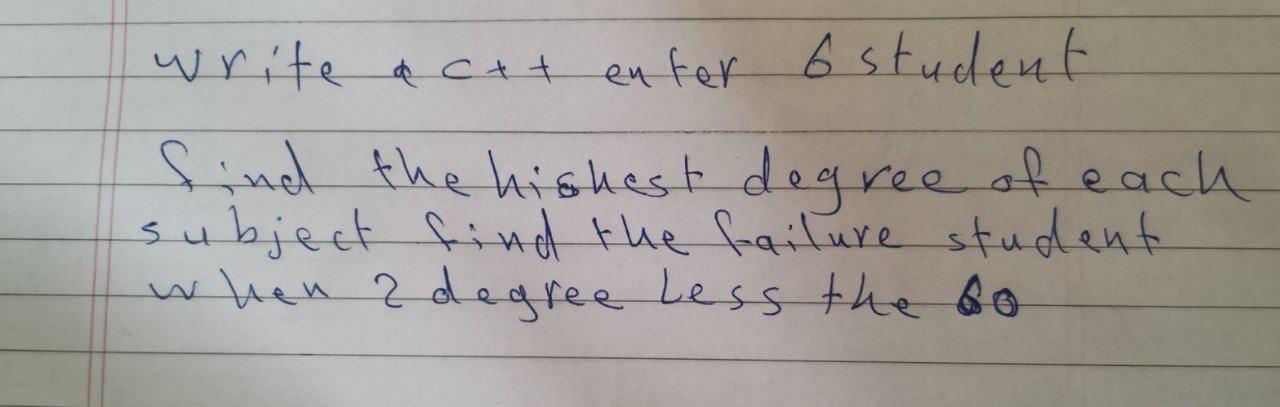 write a c++ enter 6 student
find the highest degree of each
subject find the failure student
when 2 degree Less the 60